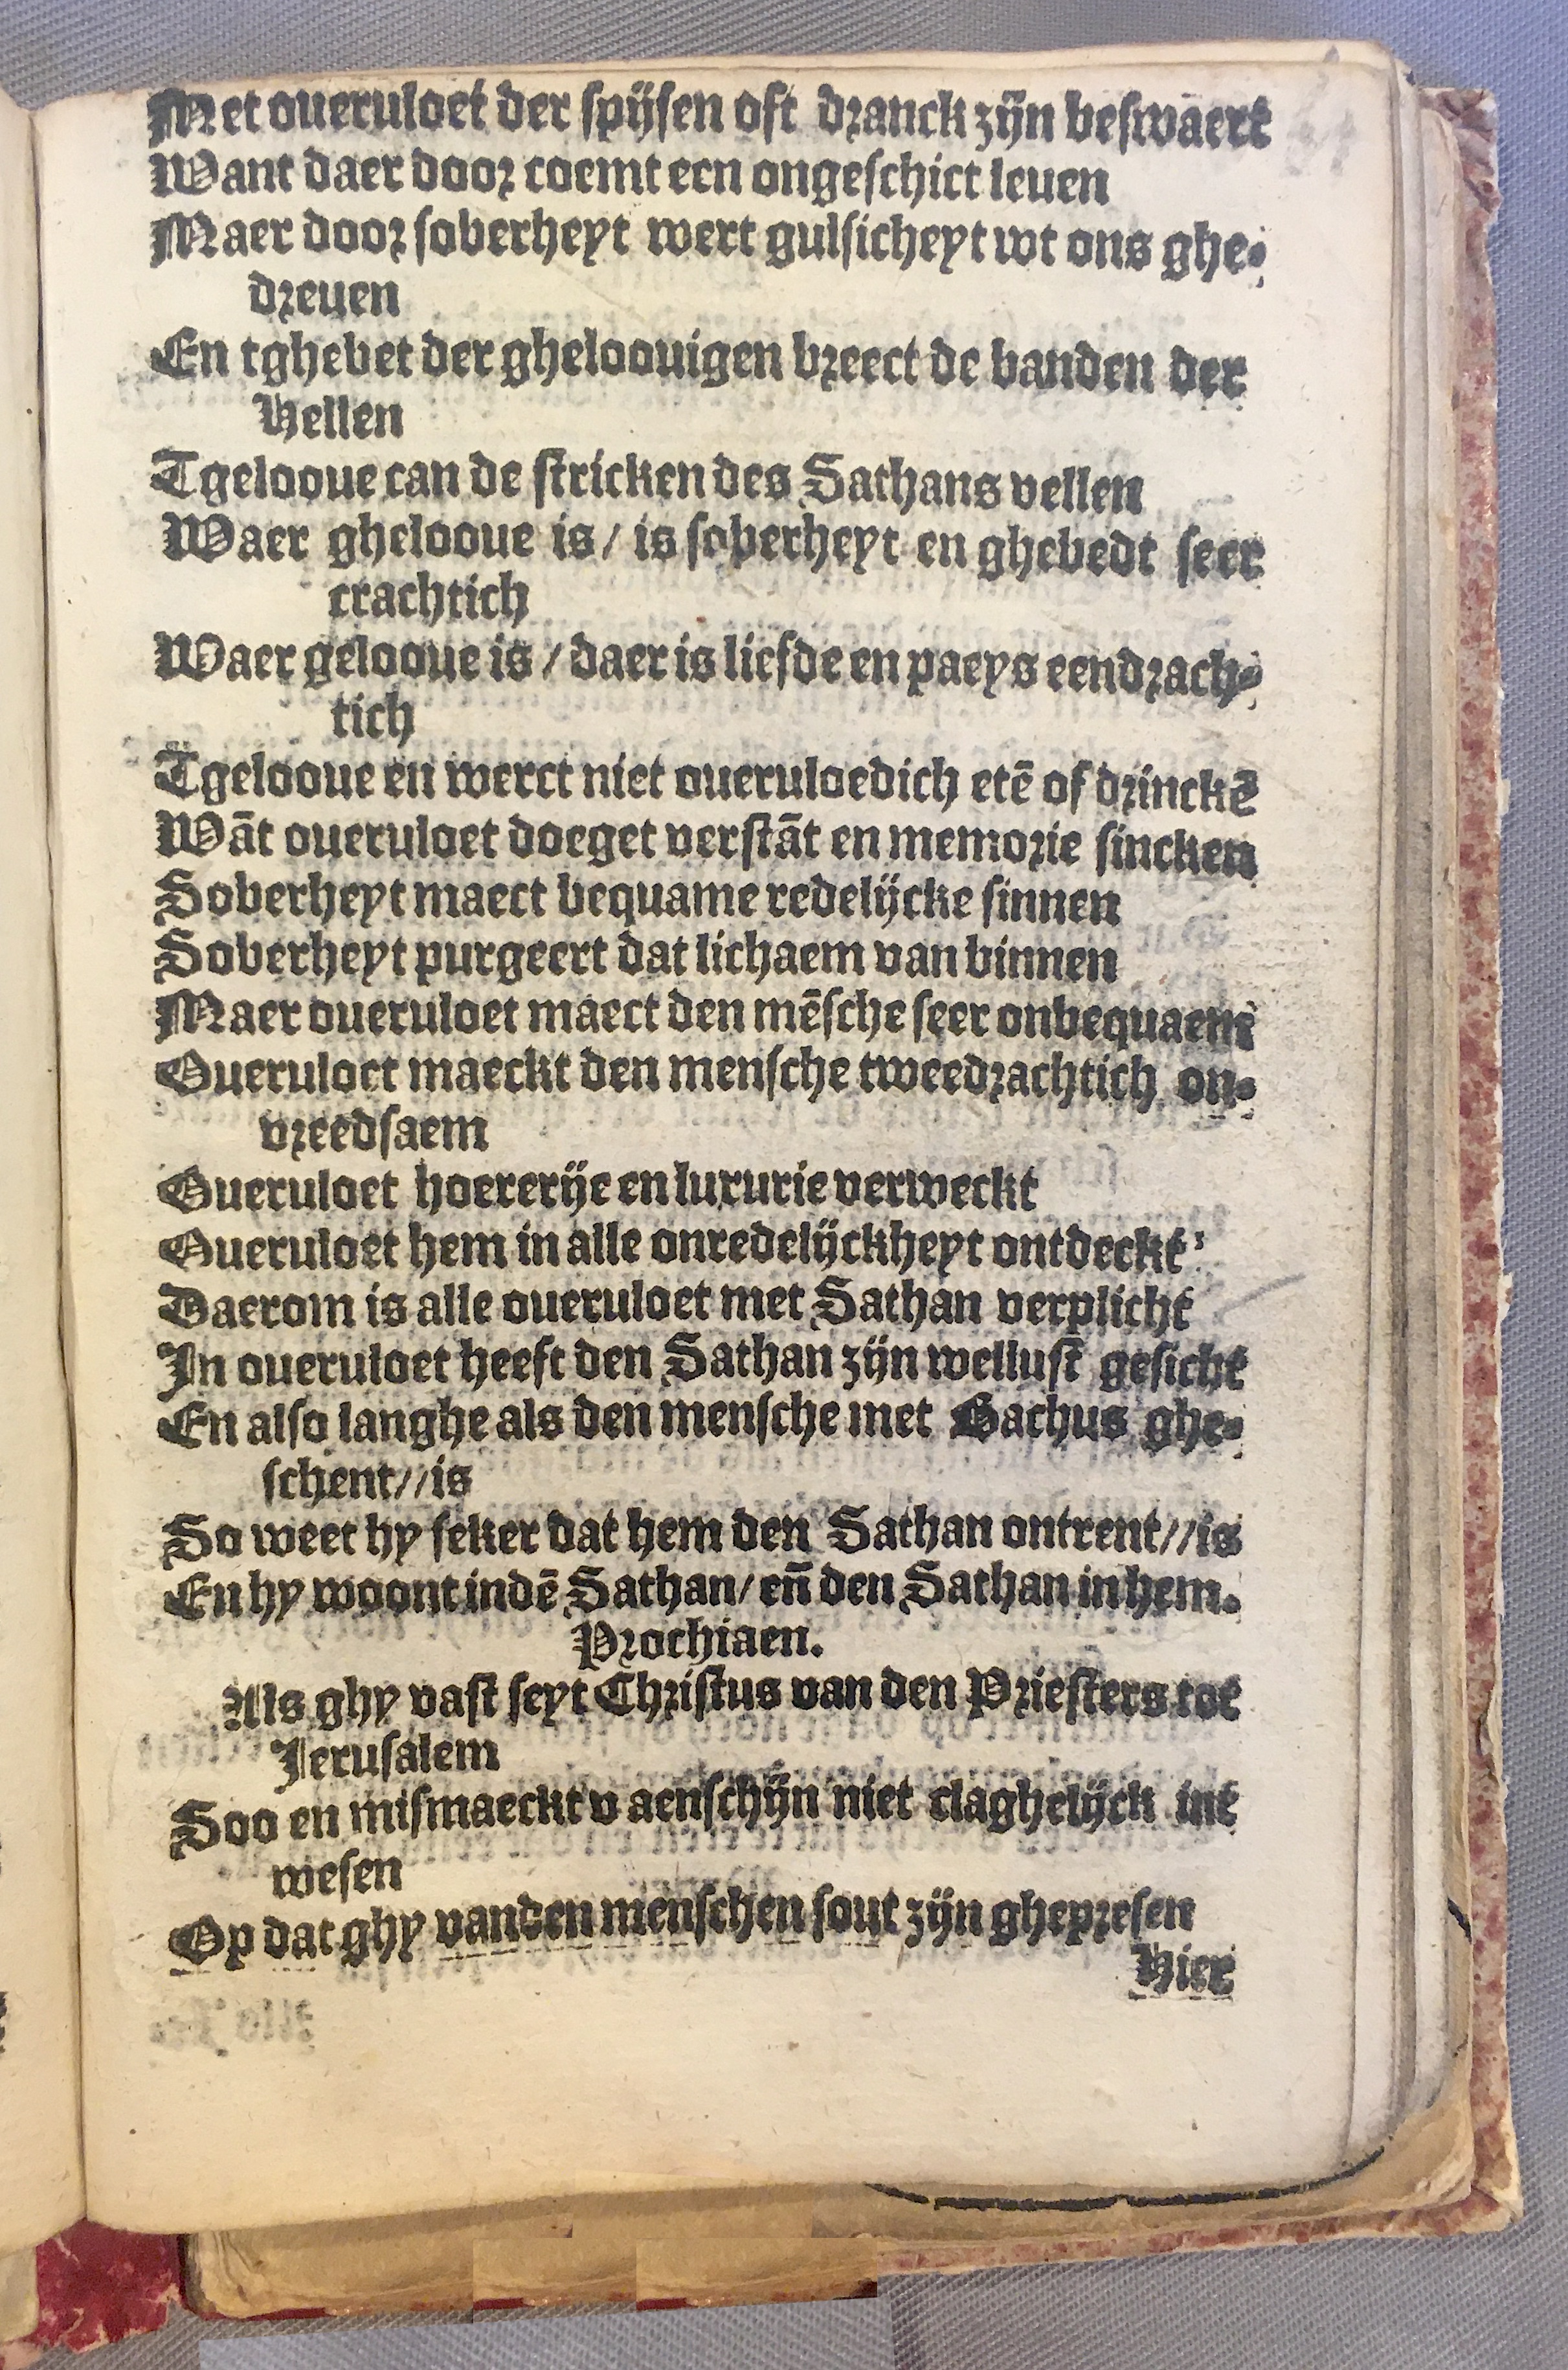 Met oueruloet der spijsen oft dranck zijn beswaert
Want daer door coemt een ongeschict leuen
Maer door soberheyt wert gulsicheyt wt ons ghe-
dreuen
En tghebet der gheloouigen breect de banden der
Hellen
Tgelooue can de stricken des Sathans vellen
Waer ghelooue is / is soberheyt en ghebedt seer
crachtich
Waer gelooue is / daer is liefde en paeys eendrach-
tich
Tgelooue en werct niet oueruloedich etē of drinckē
Wāt oueruloet doeget verstāt en memorie sincken
Soberheyt maect bequame redelijcke sinnen
Soberheyt purgeert dat lichaem van binnen
Maer oueruloet maect den mēsche seer onbequaem
Oueruloet maeckt den mensche tweedrachtich on-
vreedsaem
Oueruloet hoererije en luxurie verweckt
Oueruloet hem in alle onredelijckheyt ontdeckt
Daerom is alle oueruloet met Sathan verplicht
In oueruloet heeft den Sathan zijn wellust gesicht
En also langhe als den mensche met Bachus ghe-
schent//is
So weet hy seker dat hem den Sathan ontrent//is
En hy woont indē Sathan/ en̄ den Sathan in hem.
Prochiaen.
Als ghy vast seyt Christus van den Priesters tot
Jerusalem
Soo en mismaeckt v aenschijn niet claghelijck int
wesen
Op dat ghy vanden menschen sout zijn ghepresen
Hier